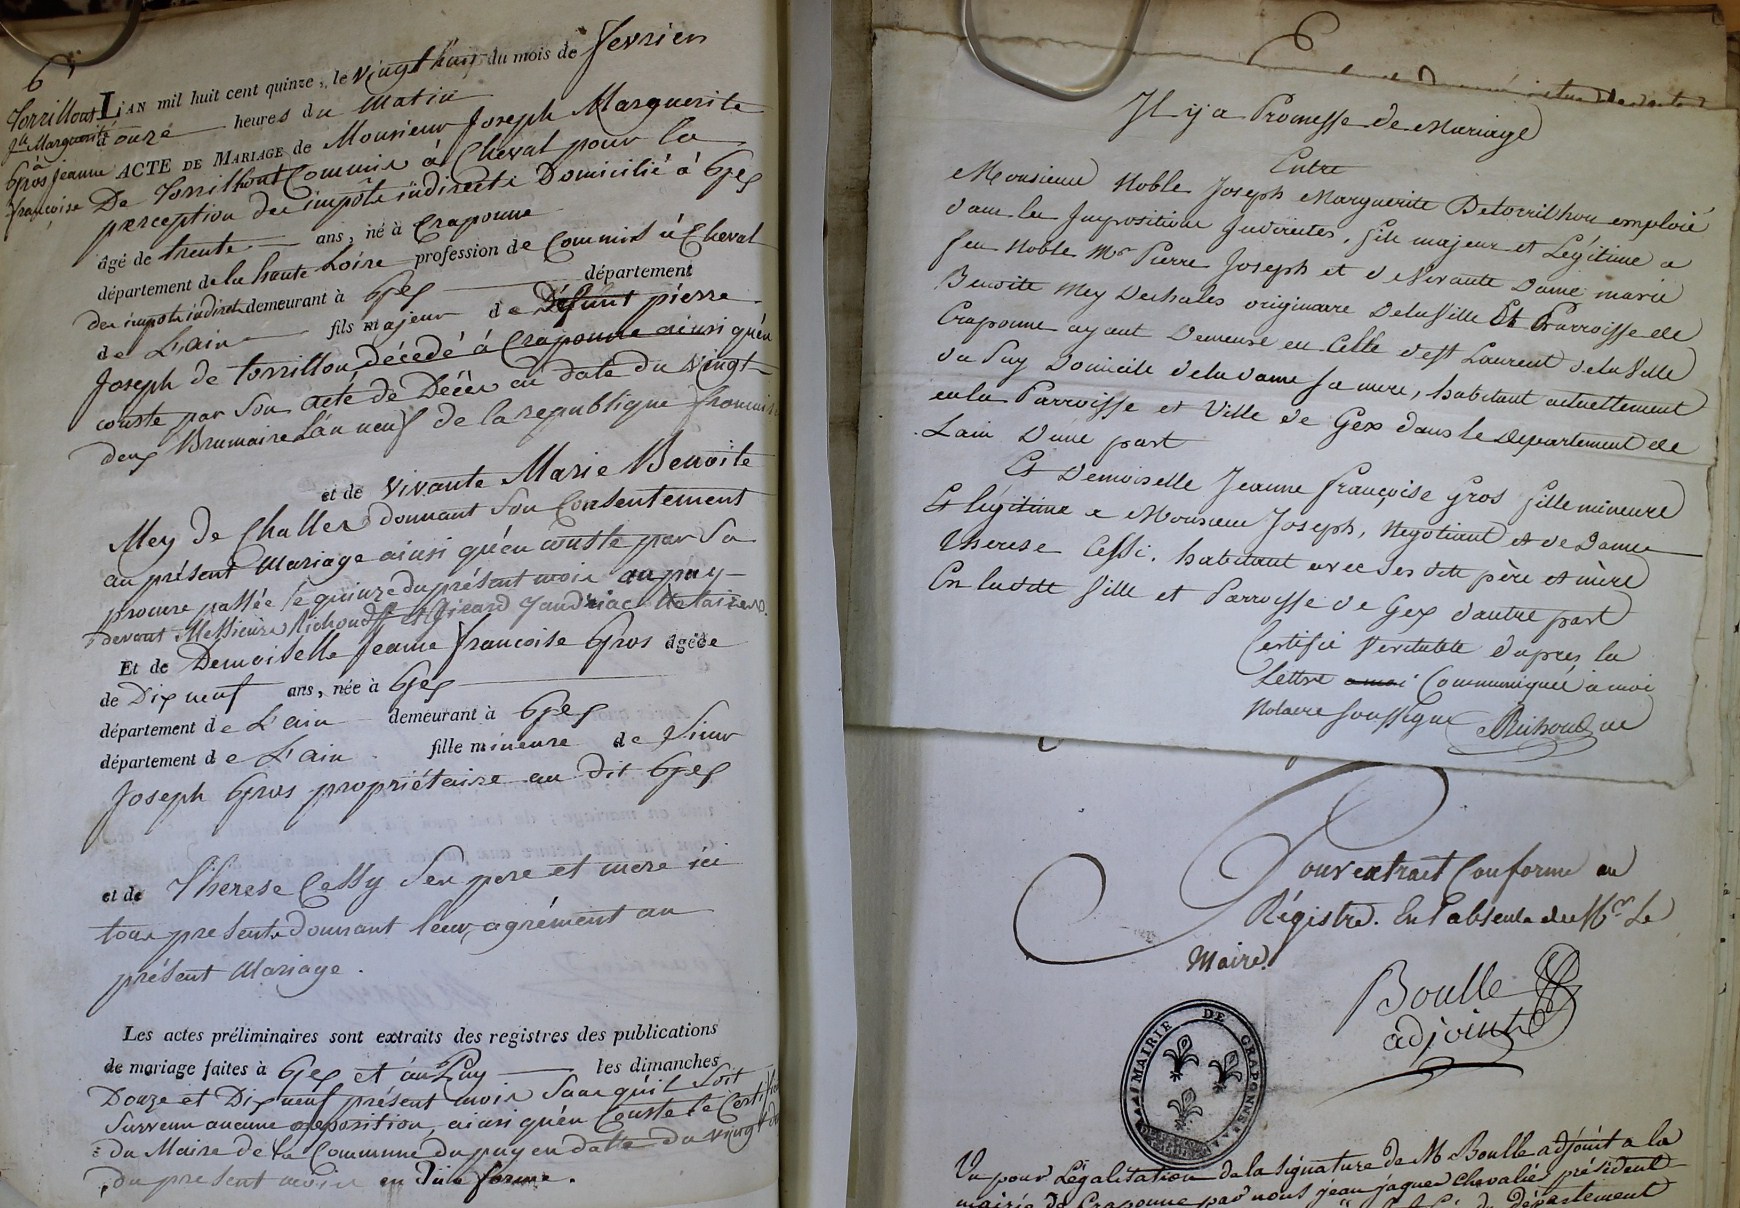 6
Torrilhont
Jh Marguerite
à
Gros jeanne
françoise
L'AN mil huit cent quinze, le vingt huit du mois de fevrier
à onze heures du Matin
ACTE DE MARIAGE de Monsieur Joseph Marguerite
De Torrilhont Commis à Cheval pour la
perception des impôts indirects Domicilié à Gex
âgé de trente ans, né à Craponne
département de la haute Loire profession de Commis à Cheval
des impots indirets demeurant à Gex département
de L'ain fils majeur de Défunt pierre
Joseph de torrillon, décédé à Craponne ainsi qu'en
conste par Son acte de Décès en date du vingt
deux Brumaire L'an neuf de la republique francaise
et de vivante Marie Benoite
Mey de Challes donnant Son Consentement
au présent Mariage ainsi qu'en conste par Sa
procure passée le quinze du présent mois au puy
devant Messieurs Richoud et Gicard Jandriac Notaires
Et de Demoiselle Jeanne françoise Gros agéee
de Dix neuf ans, née à Gex
département de L'ain demeurant à Gex
département de L'ain fille mineure de Sieur
Joseph Gros propriétaire au dit Gex
et de Therese Cessy Ses pere et mere ici
tous presents donnant leur agrément au
présent Mariage.
Les actes préliminaires sont extraits des registres des publications
de mariage faites à Gex et au Puy les dimanches
Douze et Dix neuf présent mois Sans qu'il Soit
Survenu aucune opposition, ainsi qu'en Conste le Certificat
du Maire de la Commune du puy en datte du vingt
du present mois en Due forme.
Il y a Promesse de Mariage
Entre
Monsieur Noble Joseph Marguerite Detorrilhon employé
dans les Impositions Indirectes, fils majeur et Légitime a
feu Noble Mr Pierre Joseph et de vivante Dame marie
Benoite Mey Dechales originaire de la ville Et Parroisse de
Craponne ayant Demeuré en Celle de st Laurent de la ville
du Puy Domicile de la dame Sa mere, habitant actuellement
en la Parroisse et Ville de Gex dans le Département de
Lain D'une part
Et Demoiselle Jeanne françoise Gros fille mineure
Et légitime a Monsieur Joseph, Negotiant et de Dame
therese Cessi, habitant avec Ses dits père et mère
En la dite Ville et Parroisse de Gex d'autre part
Certifié Veritable d'apres la
Lettre a moi Communiquée a moi
Notaire soussigné Richoud ne
Pour extrait Conforme au
Régistre. En l'absence de Mr Le
Maire.
Boulle
adjoint
MAIRIE DE CRAPONNE
Vu pour Légalisation de la signature de M Boulle adjoint a la
mairie de Craponne par nous jean jaques Chevalié président
département